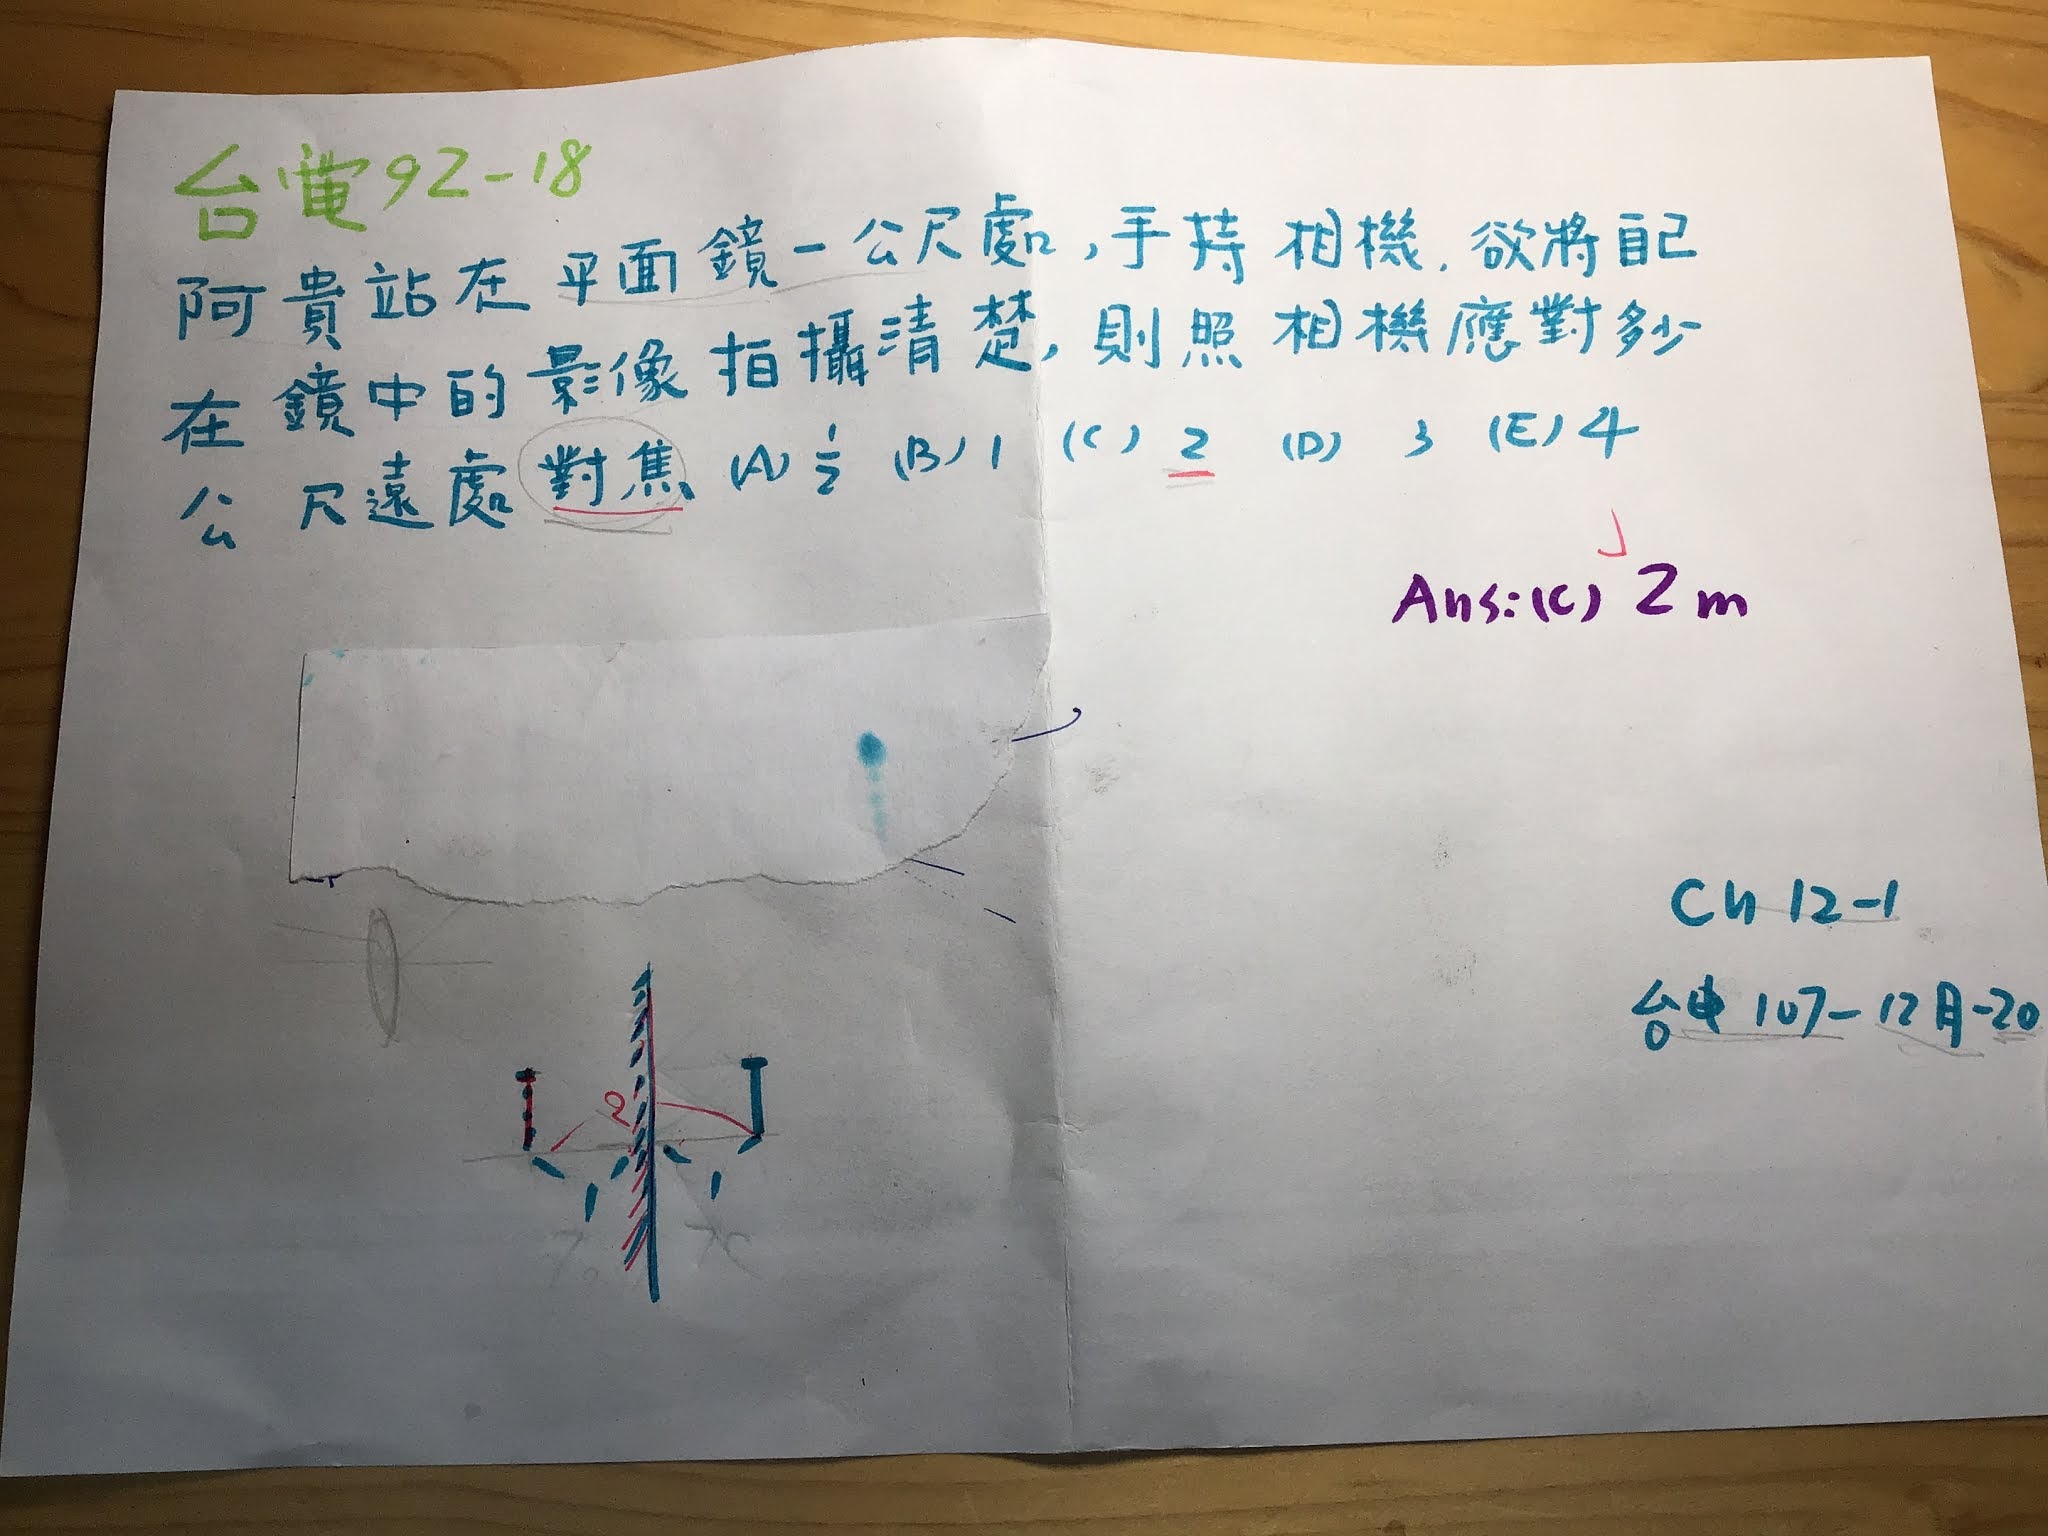 台電92-18
阿貴站在平面鏡一公尺處,手持相機,欲將自己
在鏡中的影像拍攝清楚,則照相機應對多少
公尺遠處對焦 (A) 1/2 (B) 1 (C) 2 (D) 3 (E) 4
Ans:(C) 2m
Ch 12-1
台電107-12月-20
2
1 1